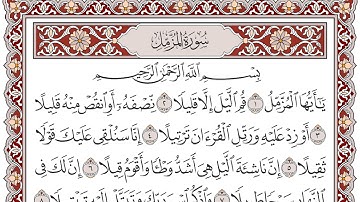 سُورَةُ المُزَّمِّلِ
بِسْمِ اللَّهِ الرَّحْمَٰنِ الرَّحِيمِ
يَٰٓأَيُّهَا ٱلْمُزَّمِّلُ ١ قُمِ ٱلَّيْلَ إِلَّا قَلِيلًا ٢ نِّصْفَهُۥٓ أَوِ ٱنقُصْ مِنْهُ قَلِيلًا
٣ أَوْ زِدْ عَلَيْهِ وَرَتِّلِ ٱلْقُرْءَانَ تَرْتِيلًا ٤ إِنَّا سَنُلْقِى عَلَيْكَ قَوْلًا
ثَقِيلًا ٥ إِنَّ نَاشِئَةَ ٱلَّيْلِ هِىَ أَشَدُّ وَطْـًٔا وَأَقْوَمُ قِيلًا ٦ إِنَّ لَكَ فِى
ٱلنَّهَارِ سَبْحًا طَوِيلًا ٧ وَٱذْكُرِ ٱسْمَ رَبِّكَ وَتَبَتَّلْ إِلَيْهِ تَبْتِيلًا ٨